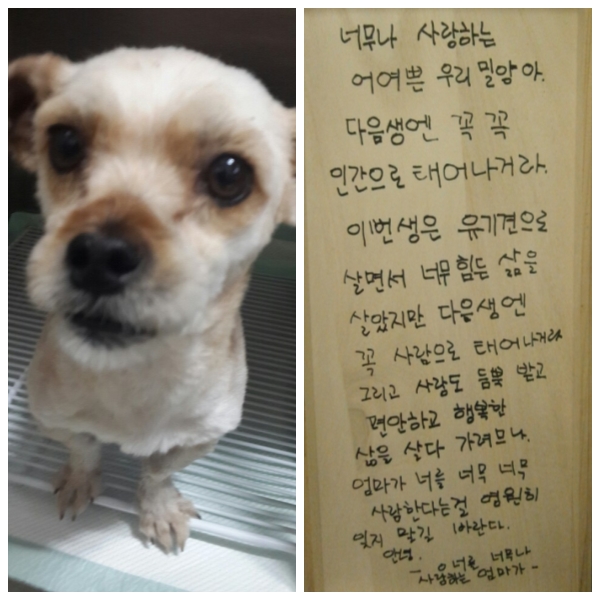 너무나 사랑하는
어여쁜 우리 밀양아.
다음생엔 꼭 꼭
인간으로 태어나거라.
이번생은 유기견으로
살면서 너무 힘든 삶을
살았지만 다음생엔
꼭 사람으로 태어나거라
그리고 사랑도 듬뿍 받고
편안하고 행복한
삶을 살다 가려므나.
엄마가 너를 너무 너무
사랑한다는걸 영원히
잊지 말길 바란다.
안녕.
- 너를 너무나
사랑하는 엄마가 -